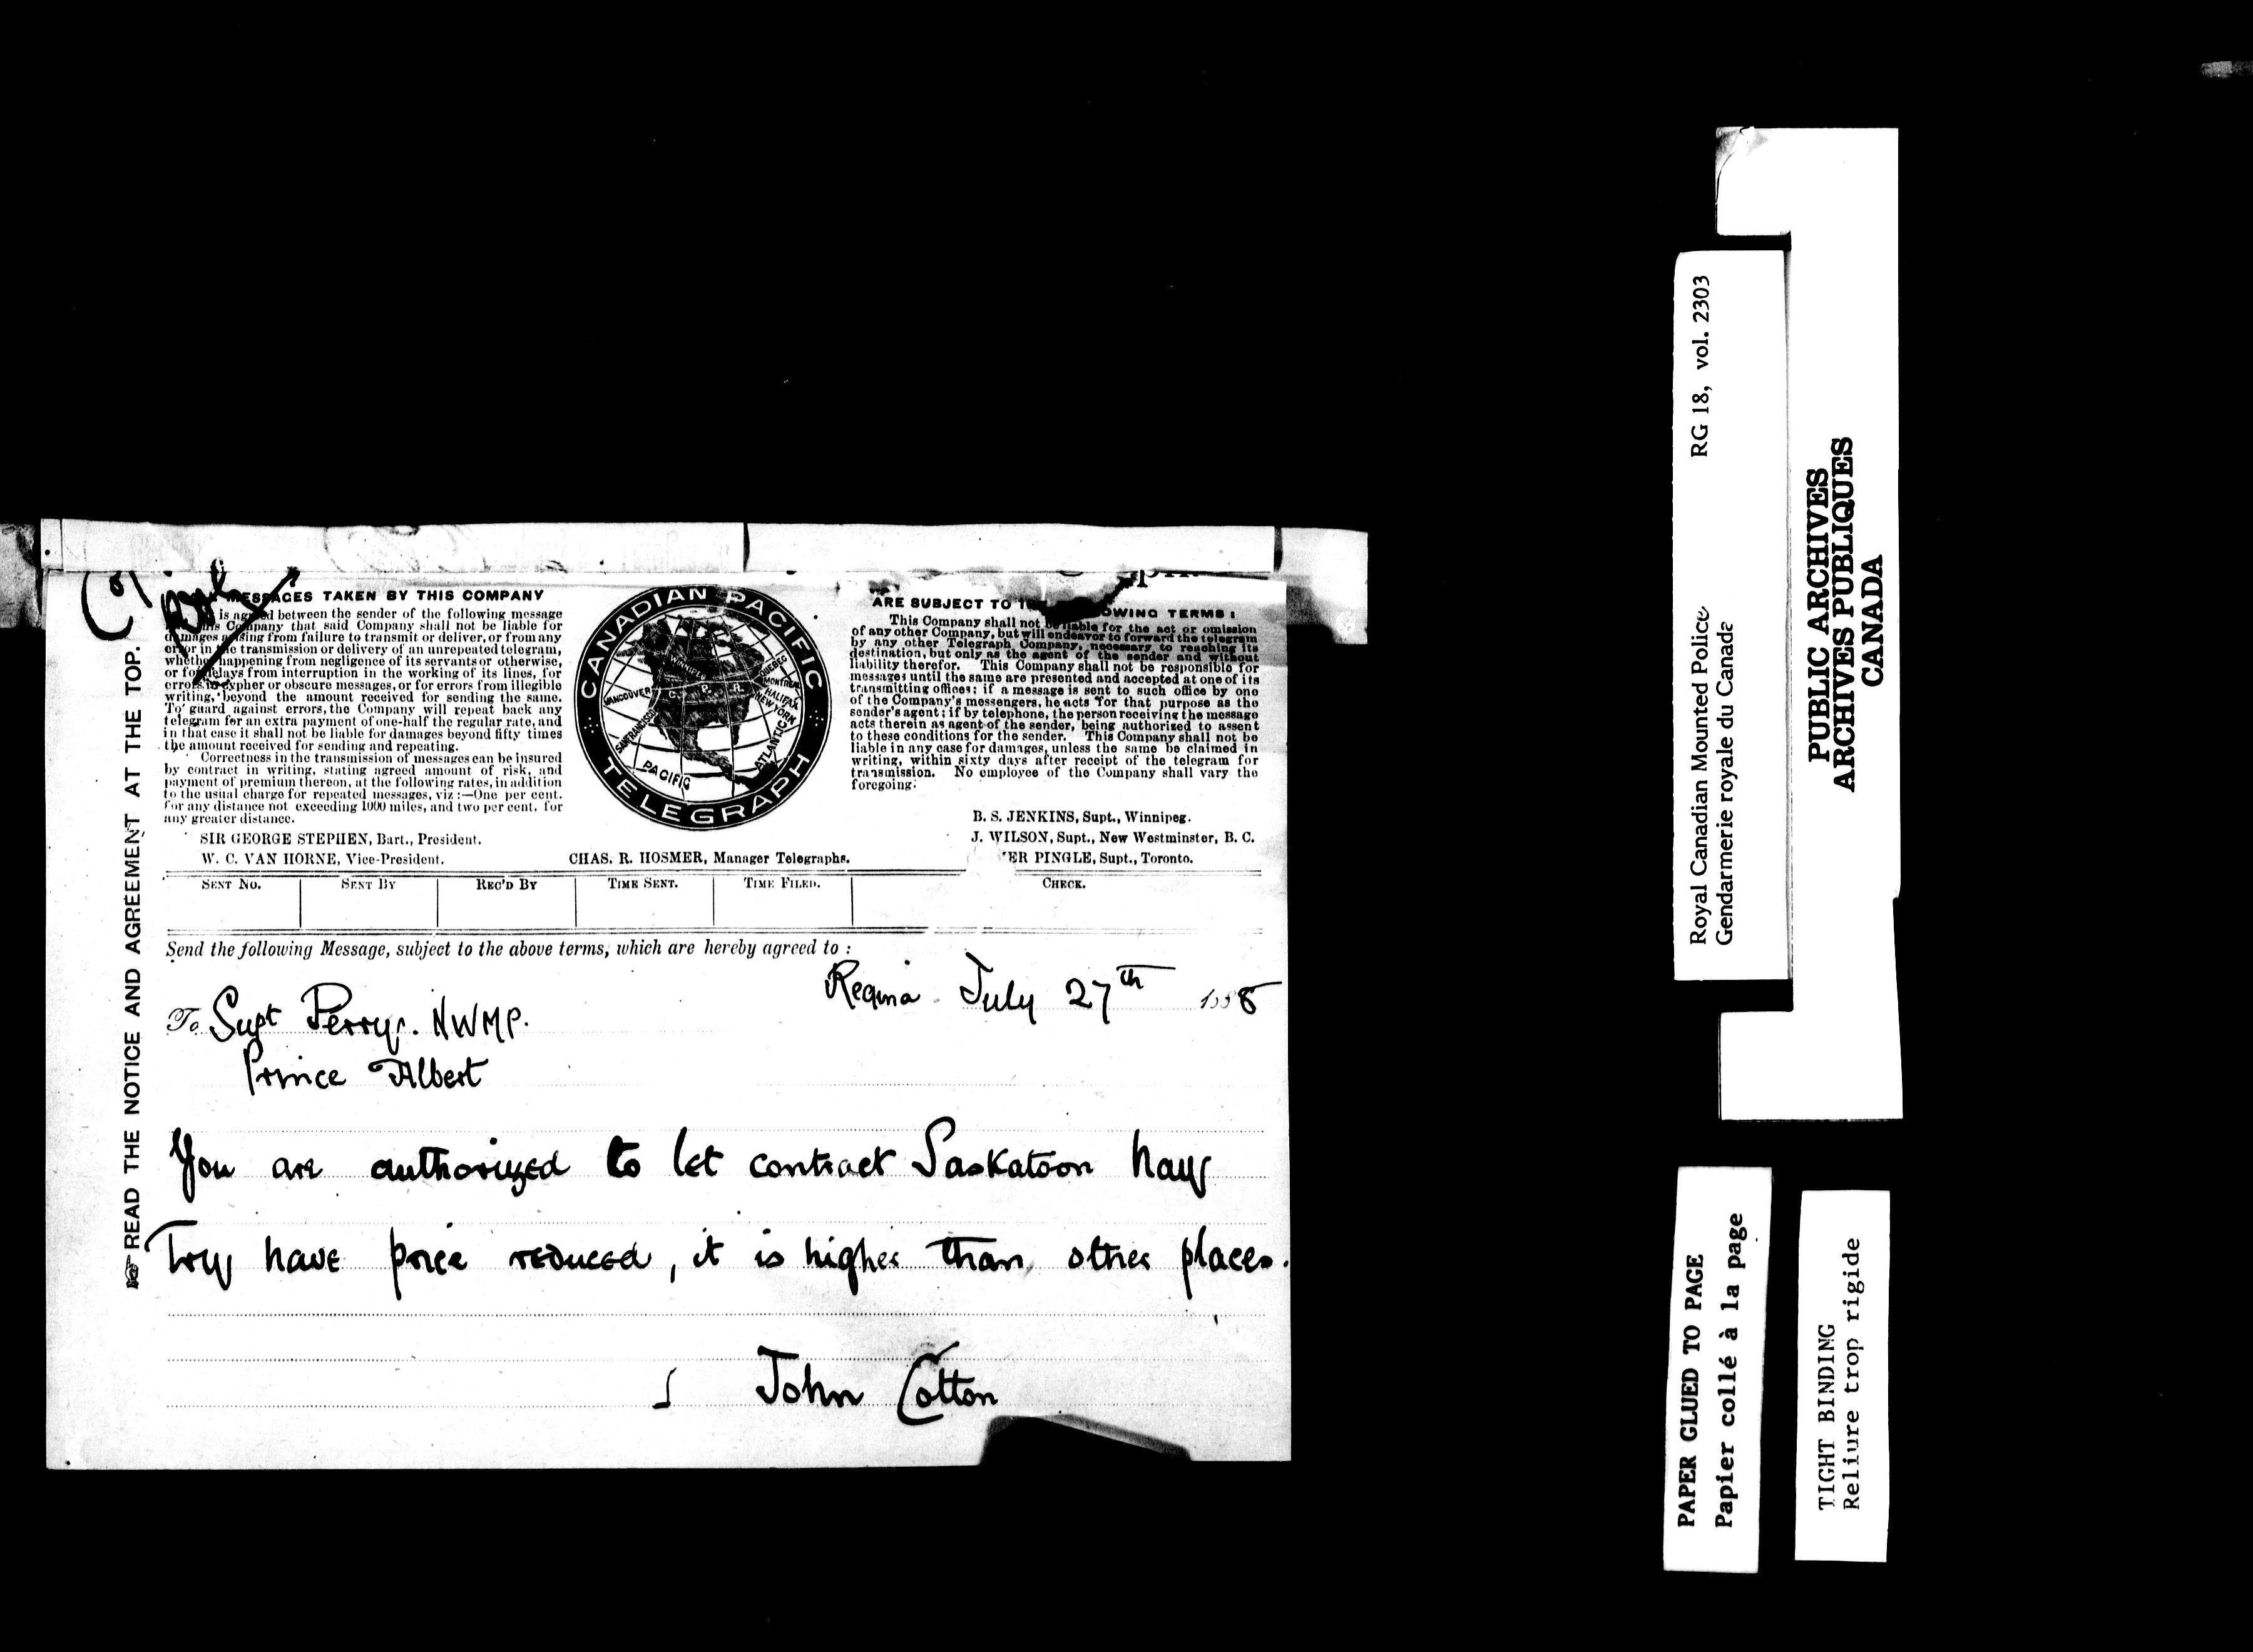 MESSAGES TAKEN BY THIS COMPANY
is agreed between the sender of the following message
this Company that said Company shall not be liable for
damages arising from failure to transmit or deliver, or from any
error in the transmission or delivery of an unrepeated telegram,
whether happening from negligence of its servants or otherwise,
or for delays from interruption in the working of its lines, for
errors in cypher or obscure messages, or for errors from illegible
writing, beyond the amount received for sending the same.
To guard against errors, the Company will repeat back any
telegram for an extra payment of one-half the regular rate, and
in that case it shall not be liable for damages beyond fifty times
the amount received for sending and repeating.
Correctness in the transmission of messages can be insured
by contract in writing, stating agreed amount of risk, and
payment of premium thereon, at the following rates, in addition
to the usual charge for repeated messages, viz :—One per cent.
for any distance not exceeding 1000 miles, and two per cent. for
any greater distance.
SIR GEORGE STEPHEN, Bart., President.
W. C. VAN HORNE, Vice-President.
CANADIAN PACIFIC
TELEGRAPH
WINNIPEG
QUEBEC
MONTREAL
HALIFAX
NEW YORK
VANCOUVER
C. P. R.
SAN FRANCISCO
ATLANTIC
PACIFIC
CHAS. R. HOSMER, Manager Telegraphs.
ARE SUBJECT TO OWING TERMS :
This Company shall not be liable for the act or omission
of any other Company, but will endeavor to forward the telegram
by any other Telegraph Company, necessary to reaching its
destination, but only as the agent of the sender and without
liability therefor. This Company shall not be responsible for
messages until the same are presented and accepted at one of its
transmitting offices; if a message is sent to such office by one
of the Company's messengers, he acts for that purpose as the
sender's agent; if by telephone, the person receiving the message
acts therein as agent of the sender, being authorized to assent
to these conditions for the sender. This Company shall not be
liable in any case for damages, unless the same be claimed in
writing, within sixty days after receipt of the telegram for
transmission. No employee of the Company shall vary the
foregoing.
B. S. JENKINS, Supt., Winnipeg.
J. WILSON, Supt., New Westminster, B. C.
ER PINGLE, Supt., Toronto.
SENT NO. SENT BY REC'D BY TIME SENT. TIME FILED. CHECK.
Send the following Message, subject to the above terms, which are hereby agreed to :
Regina July 27th 1888
To Supt Perry. NWMP.
Prince Albert
You are authorized to let contract Saskatoon hay
Try have price reduced, it is higher than other places.
John Cotton
READ THE NOTICE AND AGREEMENT AT THE TOP.
Royal Canadian Mounted Police RG 18, vol. 2303
Gendarmerie royale du Canada
PUBLIC ARCHIVES
ARCHIVES PUBLIQUES
CANADA
PAPER GLUED TO PAGE
Papier collé à la page
TIGHT BINDING
Reliure trop rigide